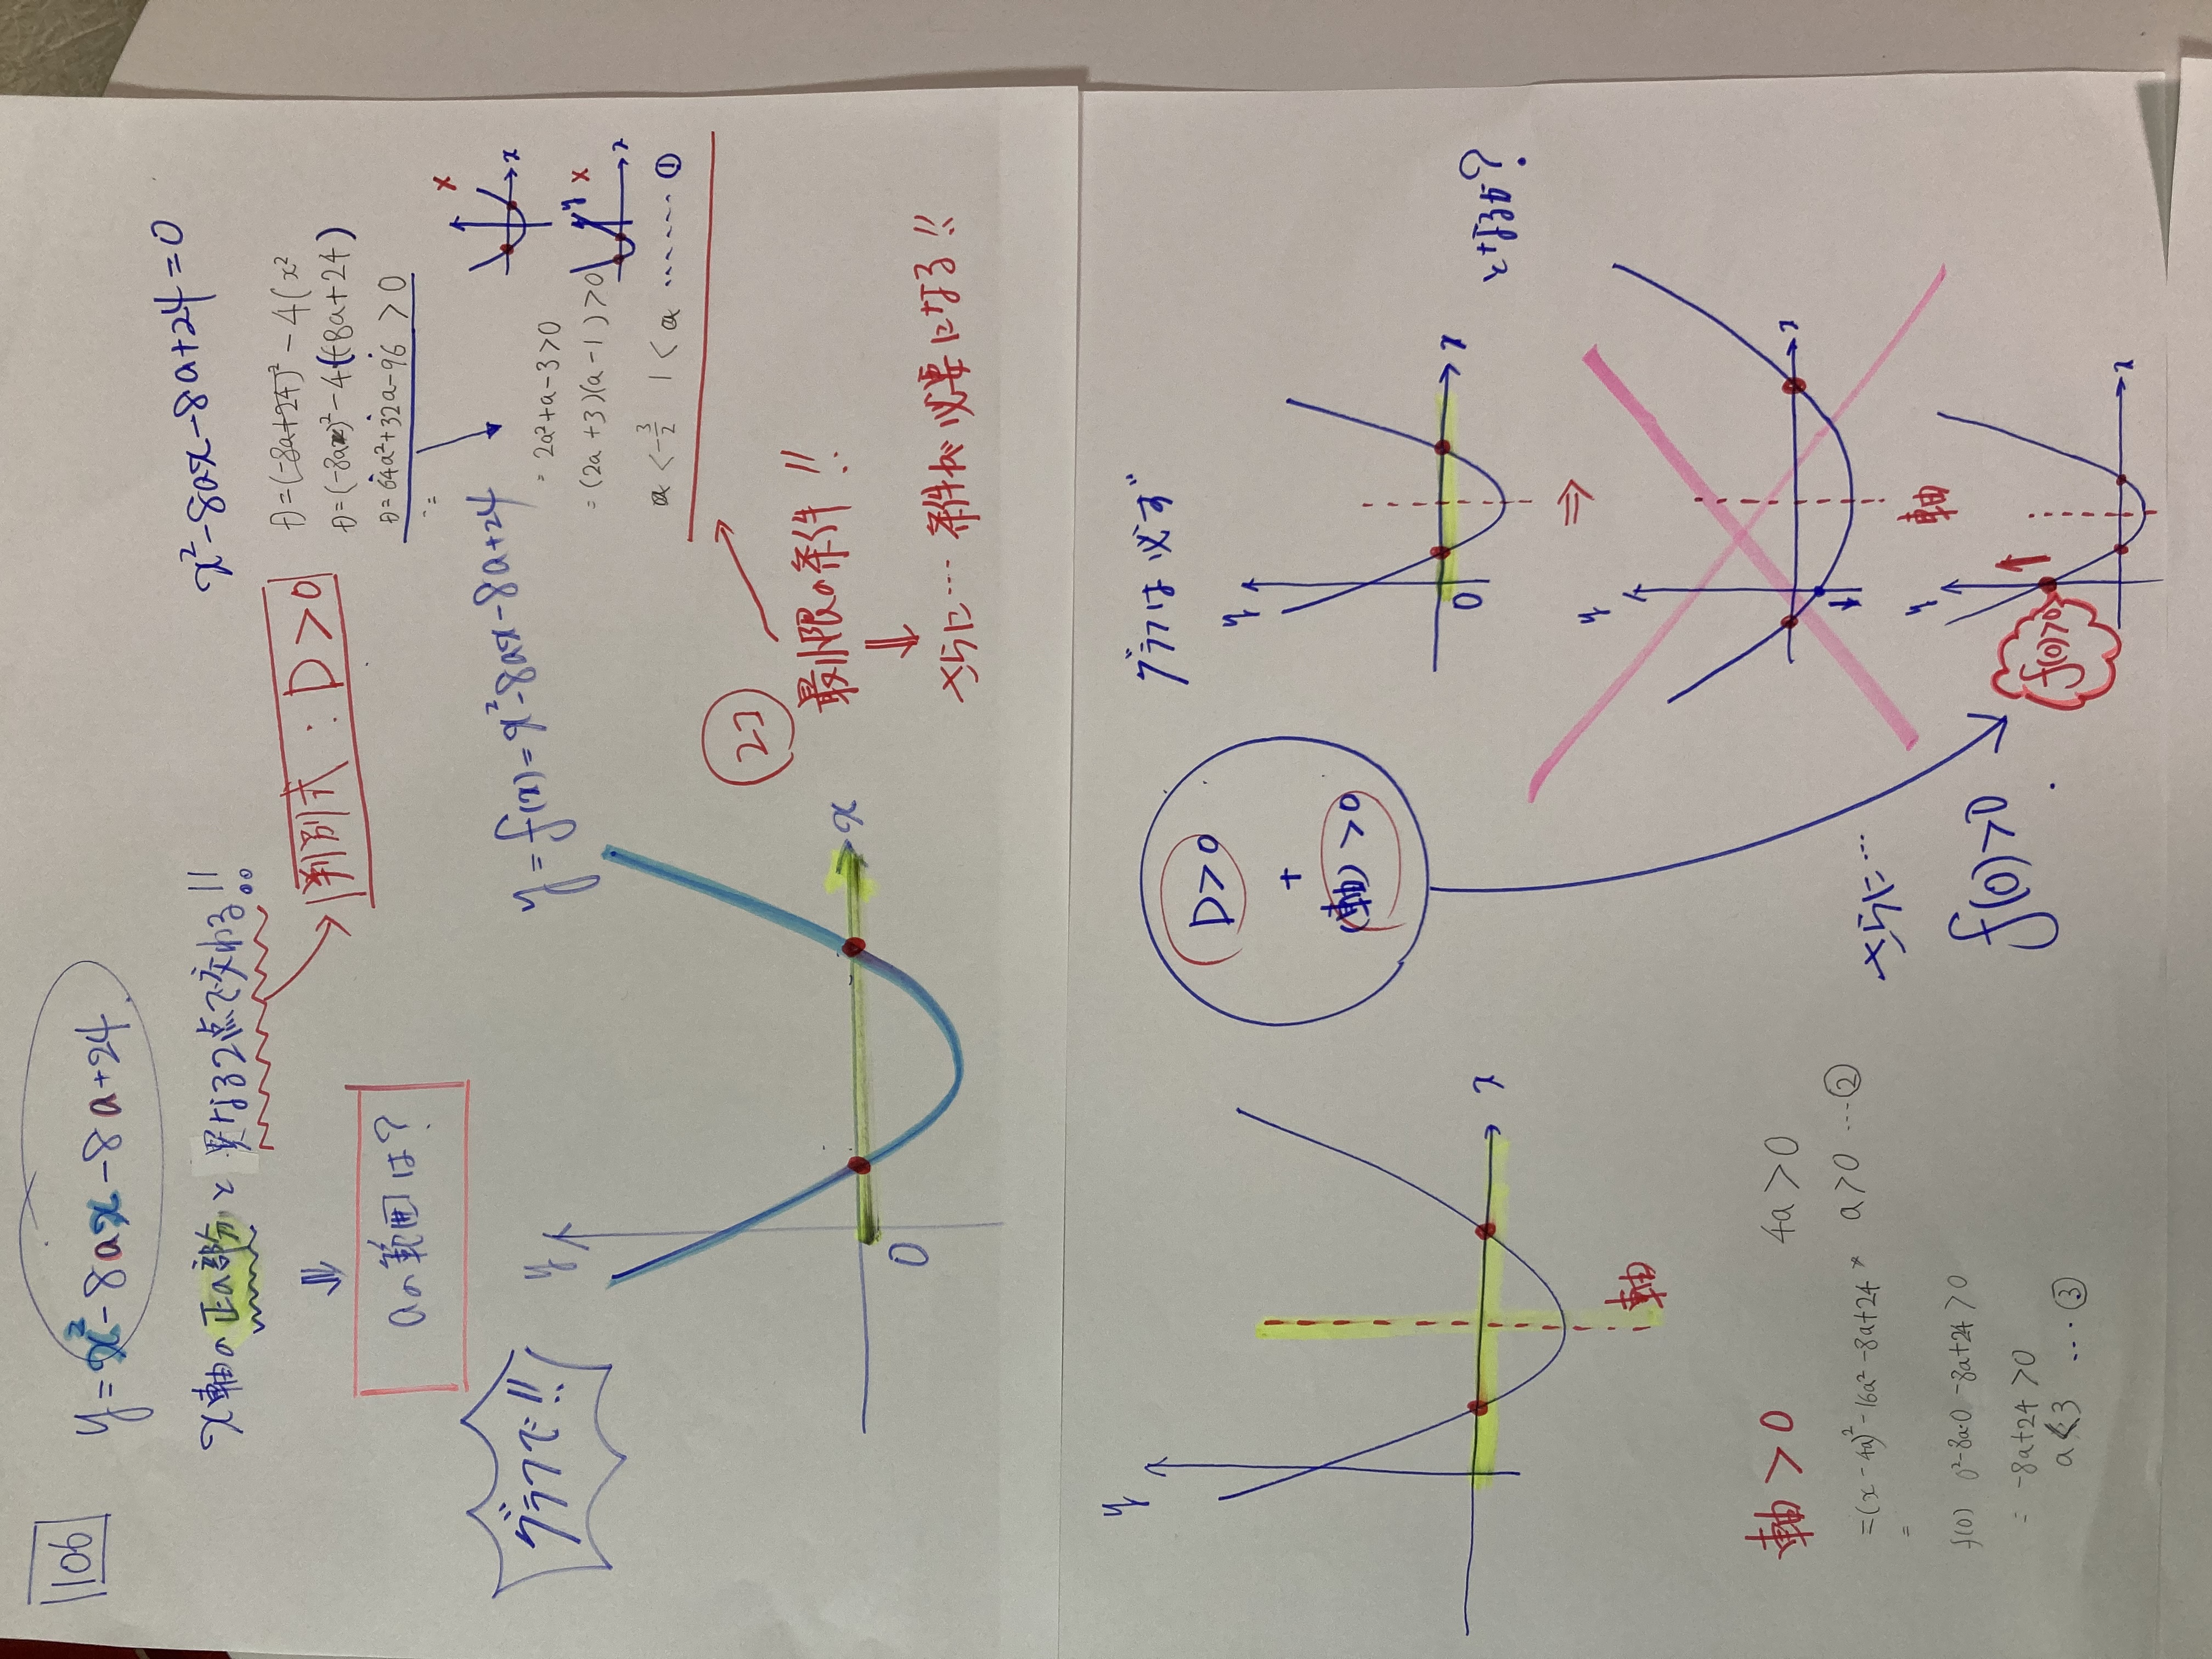 106
y=x²-8ax-8a+24
x軸の正の部分と異なる2点で交わる!!
⇓
aの範囲は?
判別式:D>0
x²-8ax-8a+24=0
D=(-8a+24)²-4(x²
D=(-8a)²-4(-8a+24)
D=64a²+32a-96>0
=
= 2a²+a-3>0
=(2a+3)(a-1)>0
a<-3/2 1<a ……①
グラフで!!
y=f(x)=x²-8ax-8a+24
y
x
0
x
x
x
y
x
最小限の条件!!
⇓
さらに…条件が必要になる!!
y
x
軸
軸>0
4a>0
=(x-4a)²-16a²-8a+24 * a>0 …②
=
f(0) 0²-8a·0-8a+24>0
= -8a+24>0
a<3 …③
D>0
+
(軸)>0
グラフは必ず
y
x
0
とするか?
⇒
y
x
軸
さらに…
f(0)>0
y
x
f(0)>0